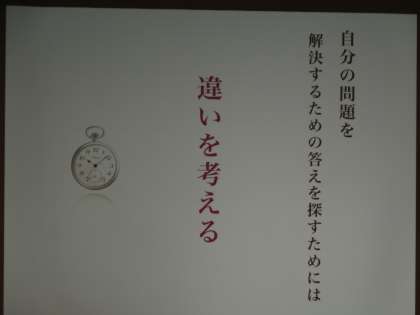 自分の問題を
解決するための答えを探すためには
違いを考える